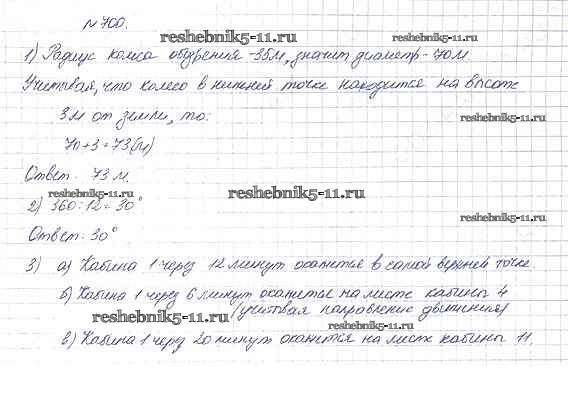 № 700.
reshebnik5-11.ru
1) Радиус колеса обозрения - 35м, значит диаметр - 70м.
Учитывая, что колесо в нижней точке находится на высоте
3м от земли, то:
reshebnik5-11.ru
70+3=73(м)
Ответ: 73 м.
reshebnik5-11.ru
reshebnik5-11.ru
2) 360:12=30°
reshebnik5-11.ru
Ответ: 30°
3) а) Кабина 1 через 12 минут окажется в самой верхней точке.
б) Кабина 1 через 6 минут окажется на месте кабины 4
(учитывая направление движения)
reshebnik5-11.ru
reshebnik5-11.ru
в) Кабина 1 через 20 минут окажется на месте кабины 11.